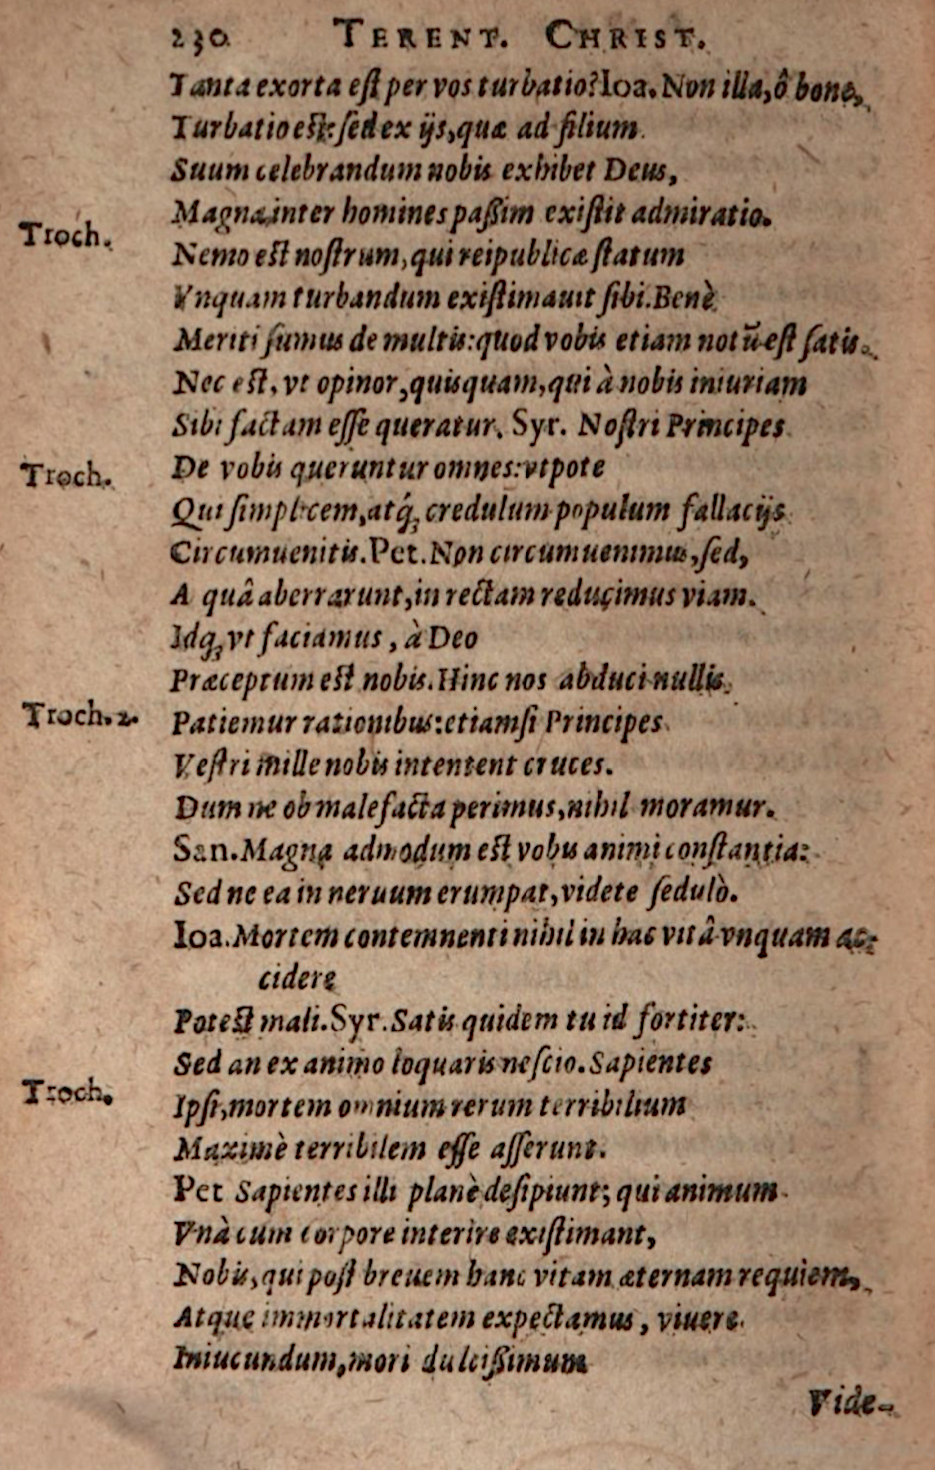 230 TERENT. CHRIST.
Tanta exorta eſt per vos turbatio? Ioa. Non illa, ô bone,
Turbatio eſt: ſed ex ijs, quæ ad filium
Suum celebrandum nobis exhibet Deus,
Magna inter homines paßim exiſtit admiratio.
Troch.
Nemo eſt noſtrum, qui reipublicæ ſtatum
Vnquam turbandum exiſtimauit ſibi. Benè
Meriti ſumus de multis: quod vobis etiam notū eſt ſatis.
Nec eſt, vt opinor, quisquam, qui à nobis iniuriam
Sibi factam eſſe queratur. Syr. Noſtri Principes
Troch.
De vobis queruntur omnes: vtpote
Qui ſimplicem, atq́; credulum populum fallacijs
Circumuenitis. Pet. Non circumuenimus, ſed,
A quâ aberrarunt, in rectam reducimus viam.
Idq; vt faciamus, à Deo
Præceptum eſt nobis. Hinc nos abduci nullis
Troch. 2.
Patiemur rationibus: etiamſi Principes
Veſtri mille nobis intentent cruces.
Dum ne ob malefacta perimus, nihil moramur.
San. Magna admodum eſt vobis animi conſtantia:
Sed ne ea in neruum erumpat, videte ſedulò.
Ioa. Mortem contemnenti nihil in hac vitâ vnquam ac-
cidere
Poteſt mali. Syr. Satis quidem tu id fortiter:
Sed an ex animo loquaris neſcio. Sapientes
Troch.
Ipſi, mortem omnium rerum terribilium
Maximè terribilem eſſe aſſerunt.
Pet Sapientes illi planè deſipiunt; qui animum
Vnà cum corpore interire exiſtimant,
Nobis, qui poſt breuem hanc vitam æternam requiem,
Atque immortalitatem expectamus, viuere
Iniucundum, mori dulcißimum
Vide-